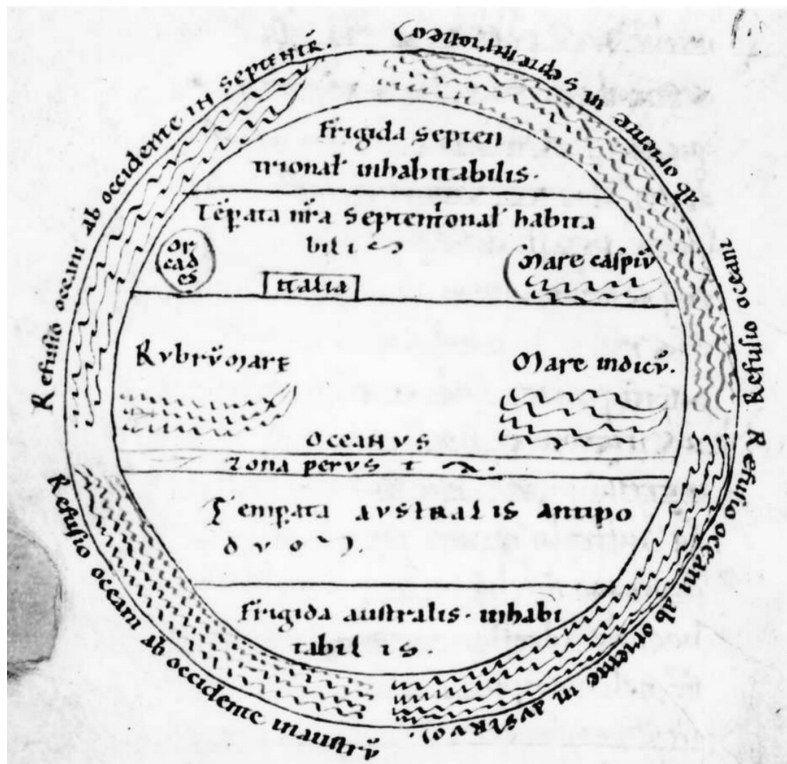 Refusio occeani ab occidente in septentr̄.
Refusio occeani ab oriente in septemtrionē
frigida septen
trional' inhabitabilis.
Tēp̄ata n̄ra septemt̄ional' habita
bili s
or
cad
es
italia
mare caspiū
Rvbrv̄ marę
Mare indicū.
occeanvs
zona pervs t a.
Temp̄ata avstralis antipo
dvoʀ.
frigida australis. inhabi
tabil is.
Refusio occeani ab occidente in austrū
Refusio occeani ab oriente in avstrvm.